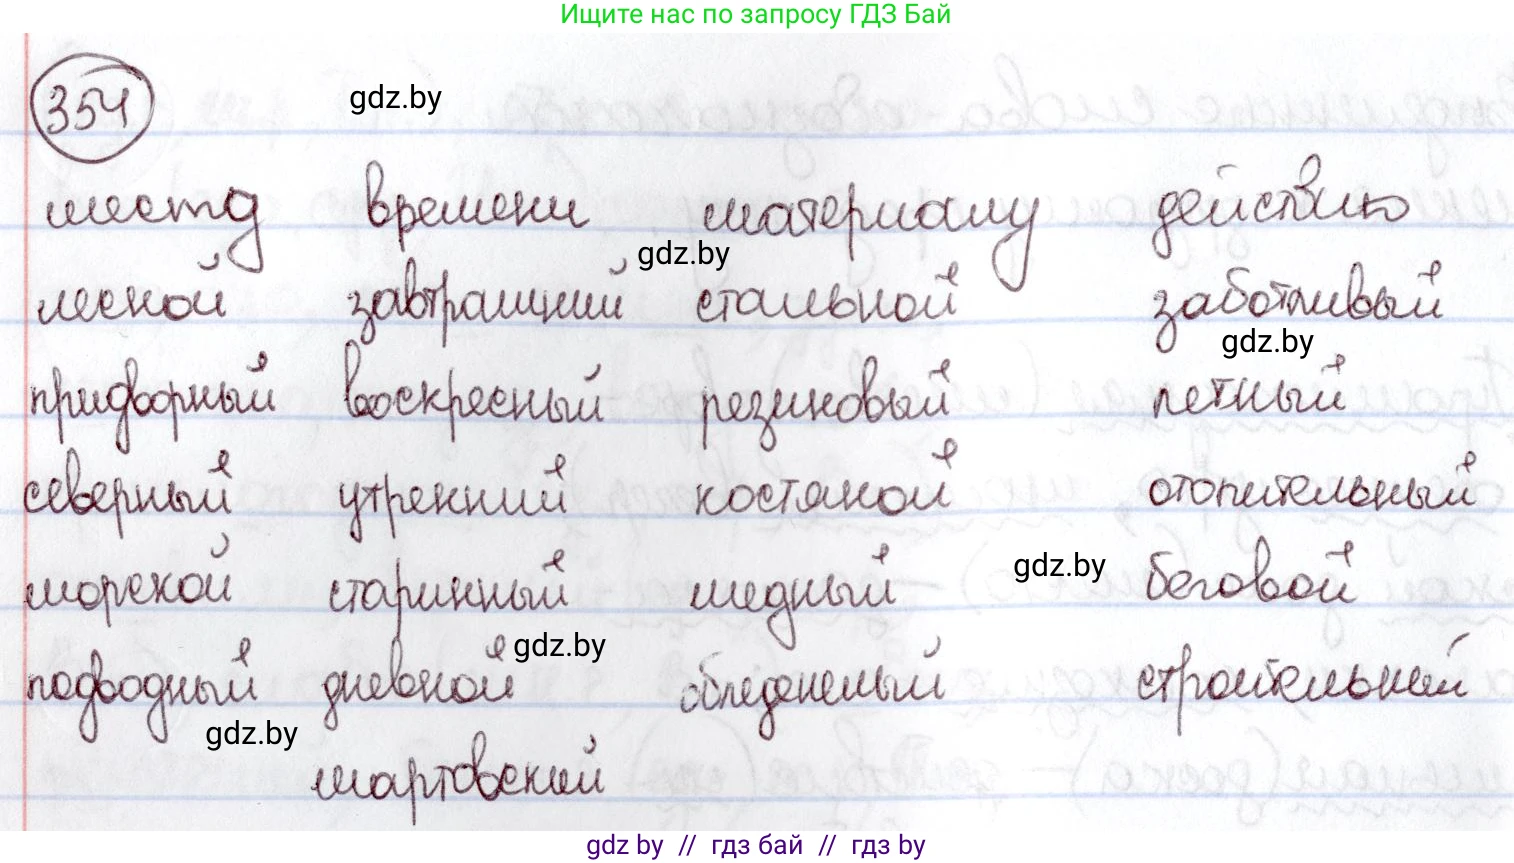 Ищите нас по запросу ГДЗ Бай
354 gdz.by
месту времени материалу действию
gdz.by
лесной завтрашний стальной заботливый
gdz.by
придворный воскресный резиновый летный
северный утренний костяной отопительный
gdz.by
морской старинный медный беговой
gdz.by
подводный дневной обледенелый строительный
gdz.by
мартовский
gdz by // гдз бай // гдз by